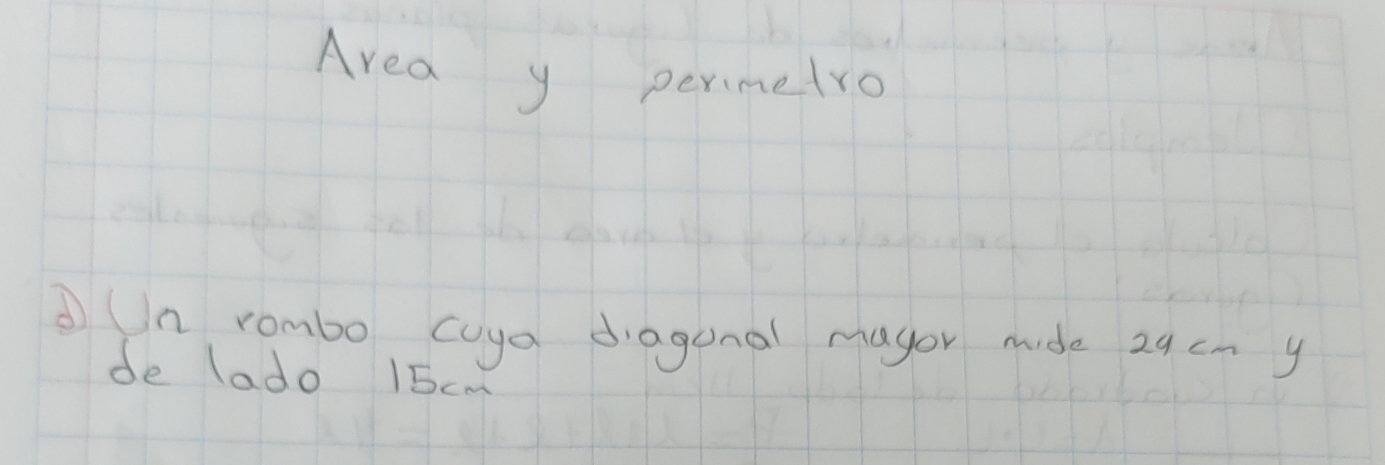 Area y perimetro
d) Un rombo cuya diagonal mayor mide 24 cm y
de lado 15cm